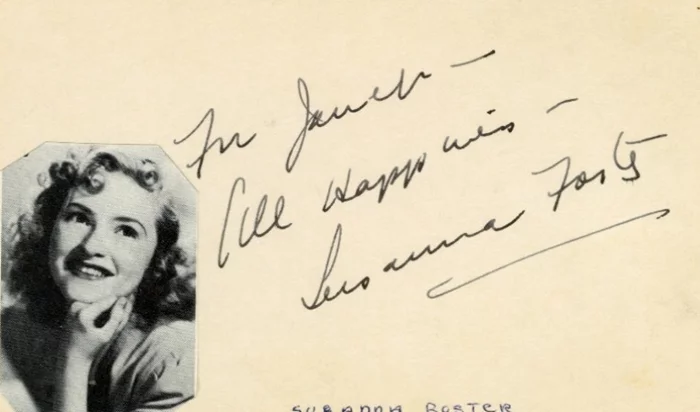 For Janet –
All Happiness –
Susanna Foster
SUSANNA FOSTER